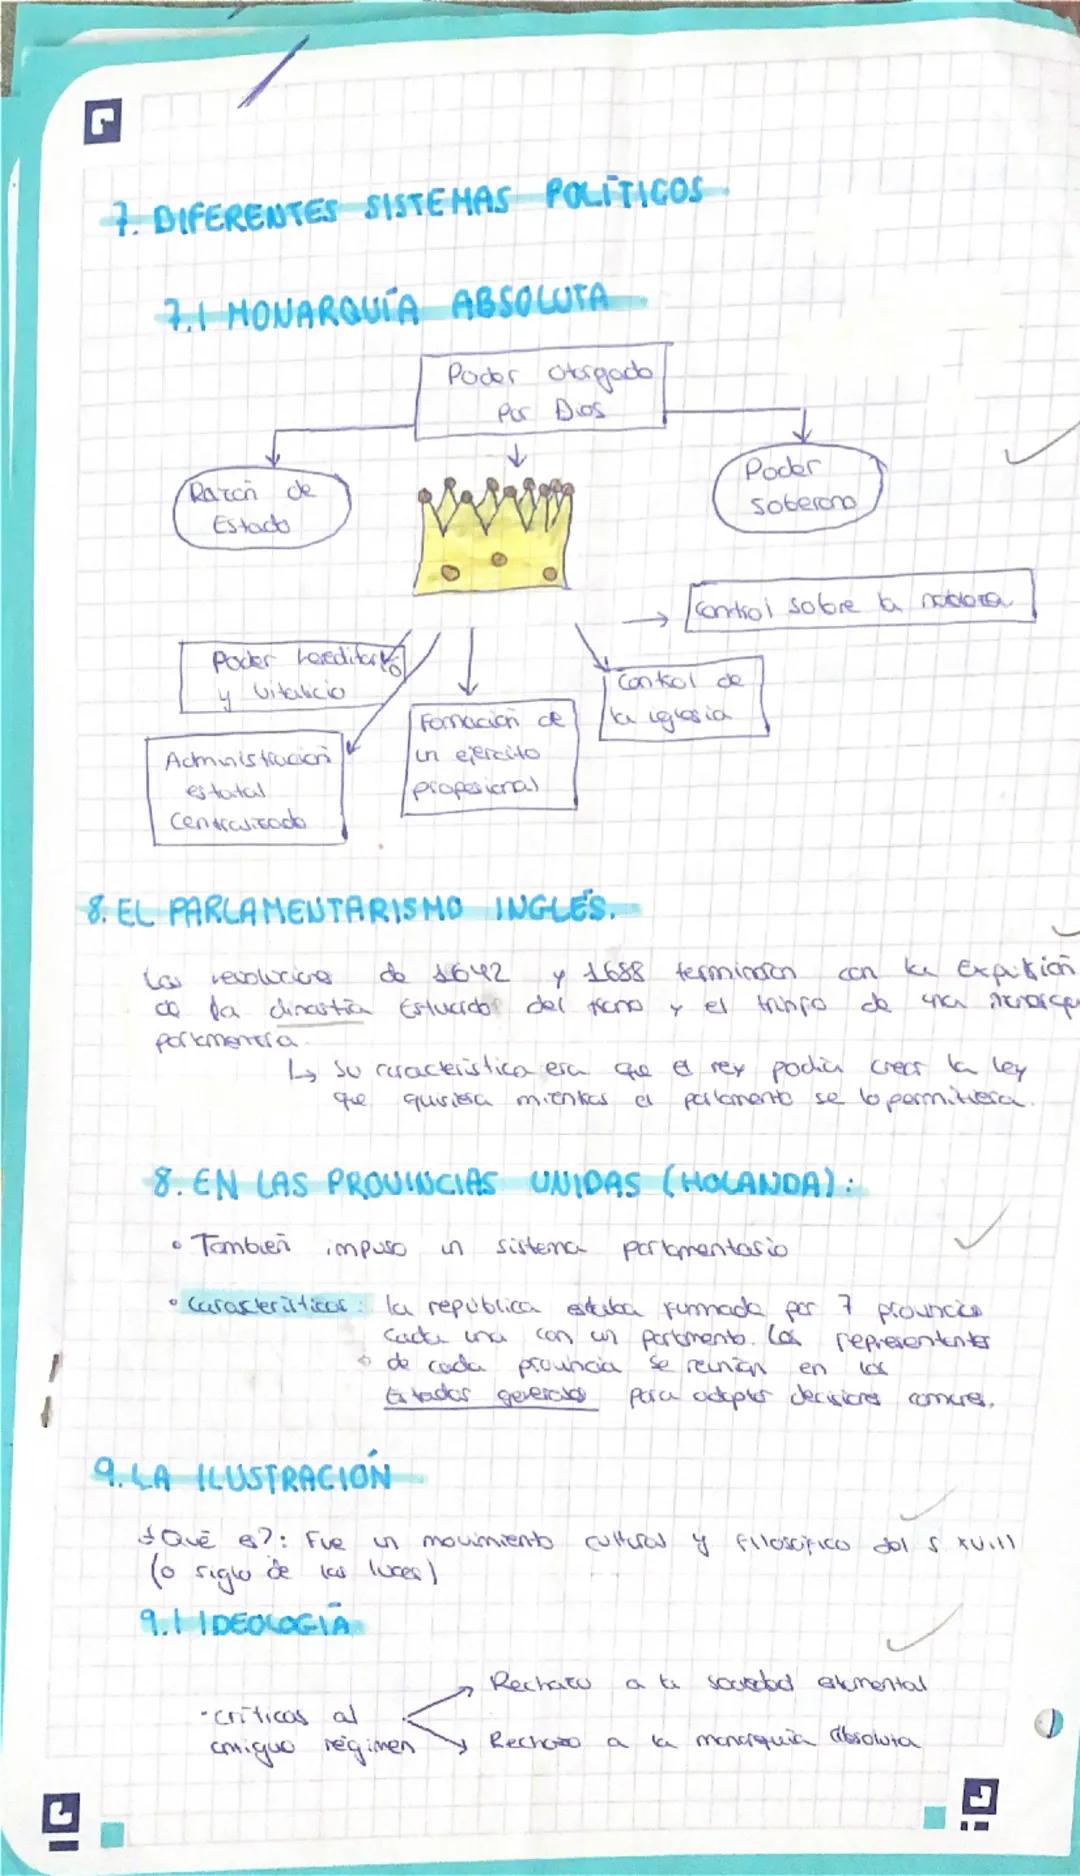 7. DIFERENTES SISTEMAS POLÍTICOS
7.1 MONARQUÍA ABSOLUTA
Poder otorgado
por Dios
Razón de
Estado
Poder
soberano
Control sobre la nobleza
Poder hereditario
y vitalicio
Control de
la iglesia
Formación de
un ejército
profesional
Administración
estatal
centralizada
8. EL PARLAMENTARISMO INGLÉS.
Las revoluciones de 1642 y 1688 terminaron con la expulsión
de la dinastía Estuardo del trono y el triunfo de una
parlamentaria.
↳ Su característica era que el rey podía crear la ley
que quisiera mientras el parlamento se lo permitiera.
8. EN LAS PROVINCIAS UNIDAS (HOLANDA):
• También impuso un sistema parlamentario
• Características: la república estaba formada por 7 provincias
cada una con un parlamento. Los representantes
de cada provincia se reunían en los
Estados generales para adoptar decisiones comunes.
9. LA ILUSTRACIÓN
¿Qué es?: Fue un movimiento cultural y filosófico del S XVIII
(o siglo de las luces)
9.1 IDEOLOGÍA
Rechazo a la sociedad estamental
- críticas al
antiguo régimen
Rechazo a la monarquía absoluta